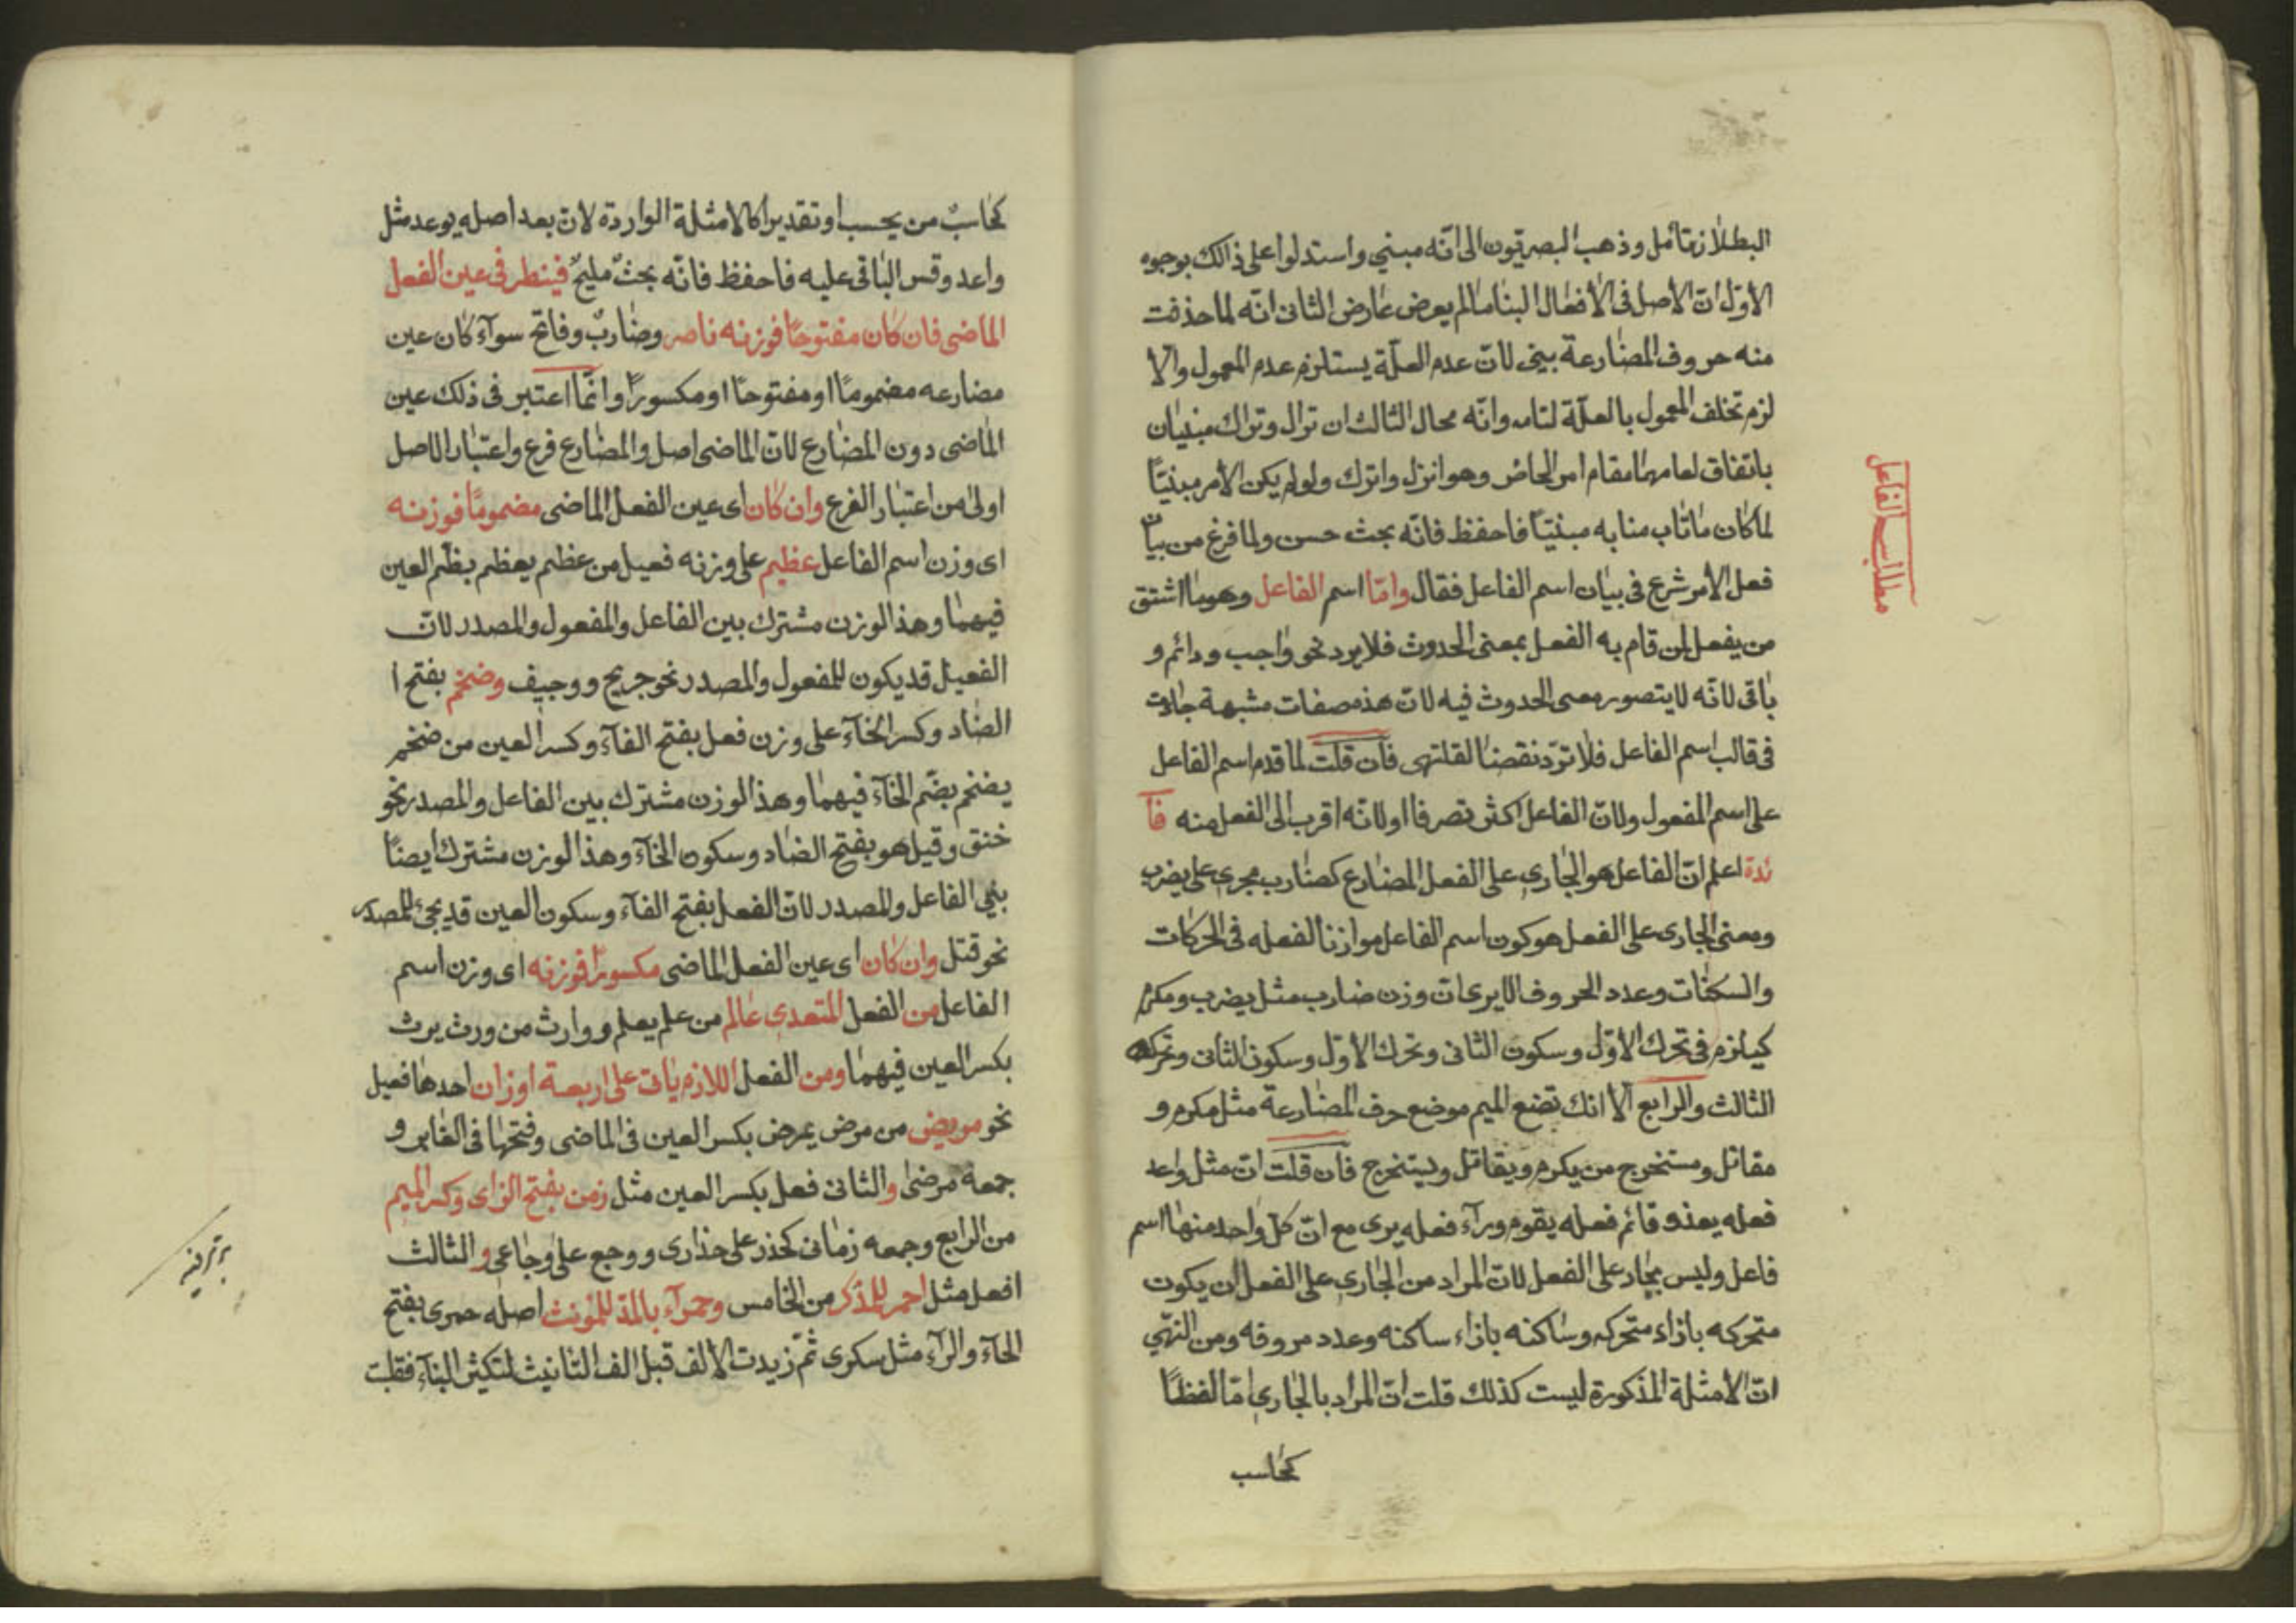 البطلان تأمل وذهب البصريون الى انّه مبني واستدلوا على ذالك بوجوه
الاوّل انّ الاصل فى الأفعال البنا مالم يعرض عارض الثانى انّه لما حذفت
منه حروف المضارعة بنى لانّ عدم العلّة يستلزم عدم المعمول والا
لزم تخلف المعمول بالعلّة لتامه وانّه محال الثالث ان نزال وتراك مبنيان
باتفاق لعامهما مقام امر الحاضر وهو انزل واترك ولو لم يكن الأمر مبنيّا
لما كان ما ناب منابه مبنيّا فاحفظ فانّه بحث حسن ولما فرغ من بيان
فعل الأمر شرع فى بيان اسم الفاعل فقال وامّا اسم الفاعل وهو ما اشتق
من يفعل لمن قام به الفعل بمعنى الحدوث فلا يرد نحو واجب ودائم و
باقى لانّه لا يتصور معنى الحدوث فيه لانّ هذه صفات مشبهة جاءت
فى قالب اسم الفاعل فلا تردّ نقضا فان قلت لما قدم اسم الفاعل
على اسم المفعول ولانّ الفاعل اكثر تصرفا اولانّه اقرب الى الفعل منه فآ
ئدة اعلم انّ الفاعل هو الجارى على الفعل المضارع كضارب مجرى على يضرب
ومعنى الجارى على الفعل هو كون اسم الفاعل موازنا لفعله فى الحركات
والسكنات وعدد الحروف الا يرى انّ وزن ضارب مثل يضرب ومكرم
كيلزم فى تحرك الأوّل وسكون الثانى وتحرك الأوّل وسكون الثانى وتحركه
الثالث والرابع الّا انك تضع الميم موضع حرف المضارعة مثل مكرم و
مقاتل ومستخرج من يكرم ويقاتل ويستخرج فان قلت انّ مثل واعد
فعله يعد و قائم فعله يقوم ورآء فعله يرى مع انّ كلّ واحد منها اسم
فاعل وليس بجار على الفعل لانّ المراد من الجارى على الفعل ان يكون
متحركه بازاء متحركه وساكنه بازاء ساكنه وعدد حروفه ومن البيّن
انّ الأمثلة المذكورة ليست كذلك قلت انّ المراد بالجارى امّا لفظًا
كحاسب
مطلب اسم الفاعل
كحاسبٌ من يحسب او تقديرا كالامثلة الواردة لانّ يعد اصله يوعد مثل
واعد وقس الباقى عليه فاحفظ فانّه بحثٌ مليحٌ فينظر فى عين الفعل
الماضى فان كان مفتوحًا فوزنه ناصر وضاربٌ وفاتح سوآء كان عين
مضارعه مضمومًا او مفتوحا او مكسورًا وانّما اعتبر فى ذلك عين
الماضى دون المضارع لانّ الماضى اصل والمضارع فرع واعتبار الاصل
اولى من اعتبار الفرع وان كان اى عين الفعل الماضى مضمومًا فوزنه
اى وزن اسم الفاعل عظيم على وزنه فعيل من عظم يعظم بظم العين
فيهما وهذ الوزن مشترك بين الفاعل والمفعول والمصدر لانّ
الفعيل قد يكون للمفعول والمصدر نحو جريح ووجيف وضخم بفتح ا
الضاد وكسر الخآء على وزن فعل بفتح الفآء وكسر العين من ضخم
يضخم بضّم الخآء فيهما وهذ الوزن مشترك بين الفاعل والمصدر نحو
خنق وقيل هو بفتح الضاد وسكون الخآء وهذ الوزن مشترك ايضًا
بنى الفاعل والمصدر لانّ الفعل بفتح الفآء وسكون العين قد يجئ للمصدر
نحو قتل وان كان اى عين الفعل الماضى مكسورًا فوزنه اى وزن اسم
الفاعل من الفعل المتعدى عالم من علم يعلم ووارث من ورث يرث
بكسر العين فيهما ومن الفعل اللازم يات على اربعة اوزان احدها فعيل
نحو مريض من مرض يمرض بكسر العين فى الماضى وفتحها فى الغابر و
جمعه مرضى والثانى فعل بكسر العين مثل زمن بفتح الزاى وكسر الميم
من الرابع وجمعه زمانى كحذر على حذارى ووجع على وجاعى والثالث
افعل مثل احمر للمذكر من الخامس وحمرآء بالمدّ للمؤنث اصله حمرى بفتح
الحآء والرآء مثل سكرى ثمّ زيدت الالف قبل الف التانيث لتكثير البنآء فقلبت